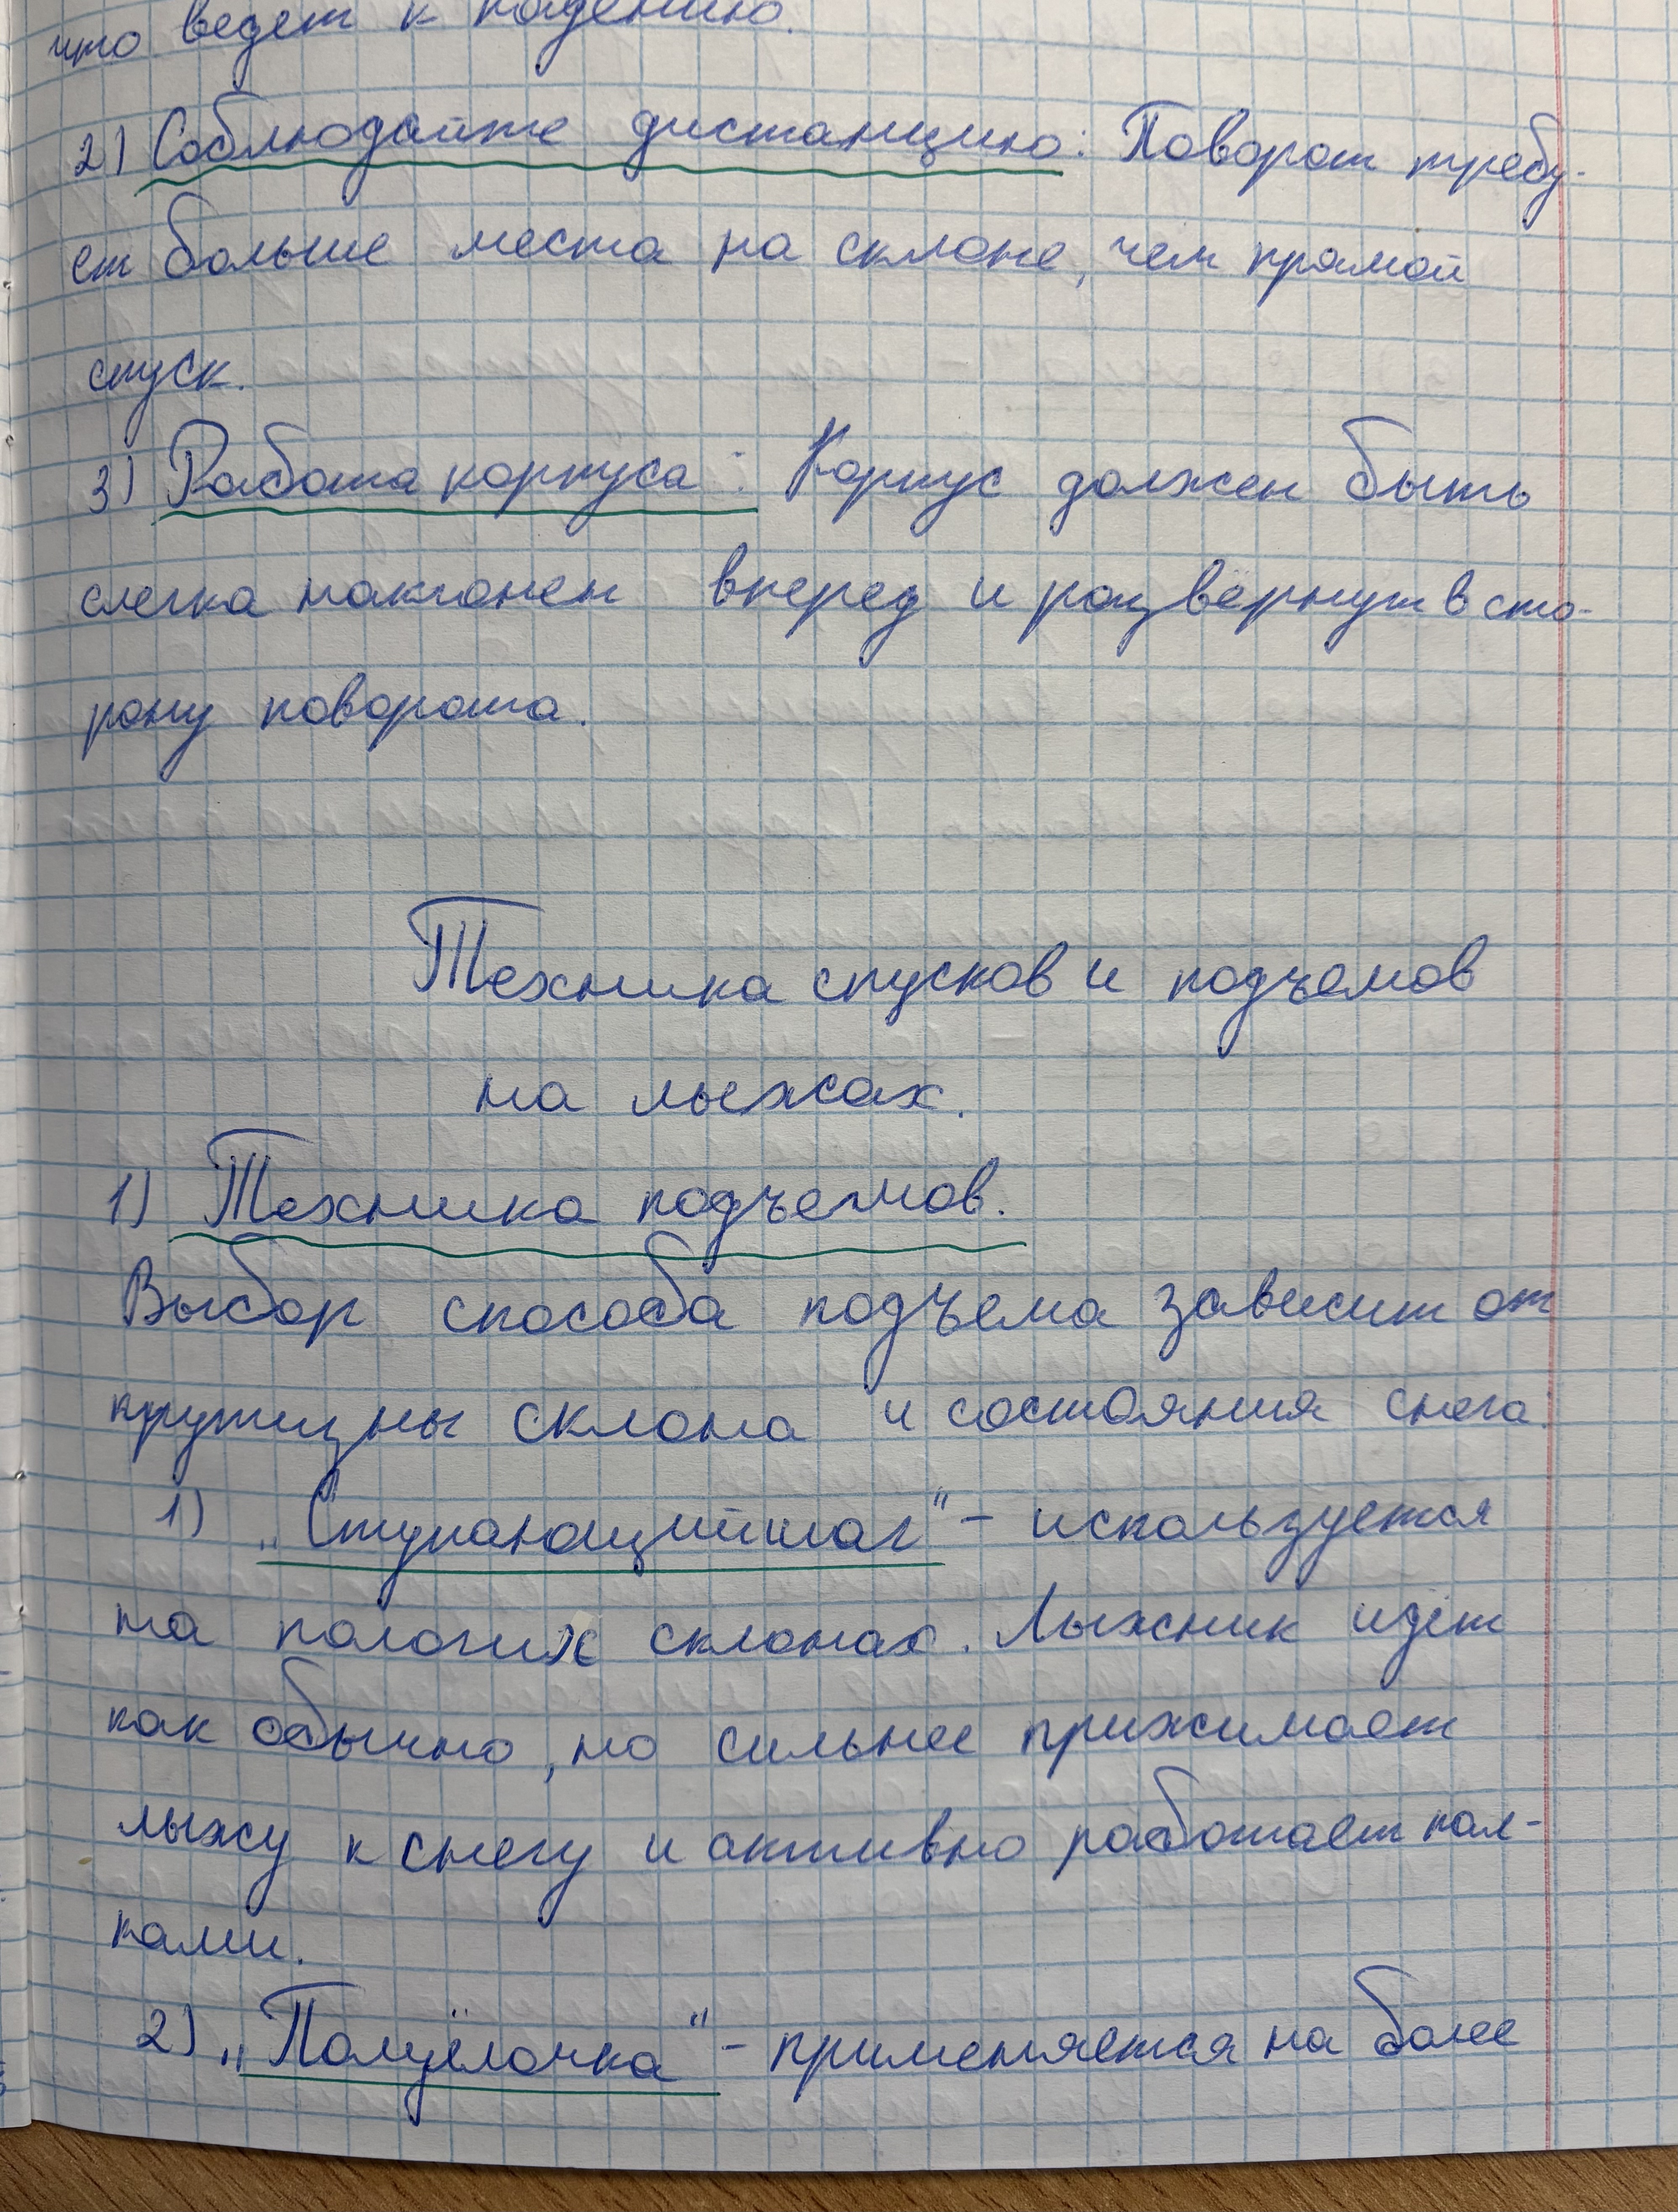 что ведет к падению.
2) Соблюдайте дистанцию: Поворот требу-
ет больше места на склоне, чем прямой
спуск.
3) Работа корпуса: Корпус должен быть
слегка наклонен вперед и развёрнут в сто-
рону поворота.
Техника спусков и подъемов
на лыжах.
1) Техника подъемов.
Выбор способа подъема зависит от
крутизны склона и состояния снега.
1) „Ступающий шаг" - используется
на пологих склонах. Лыжник идёт
как обычно, но сильнее прижимает
лыжу к снегу и активно работает пал-
ками.
2) „Полуёлочка" - применяется на более